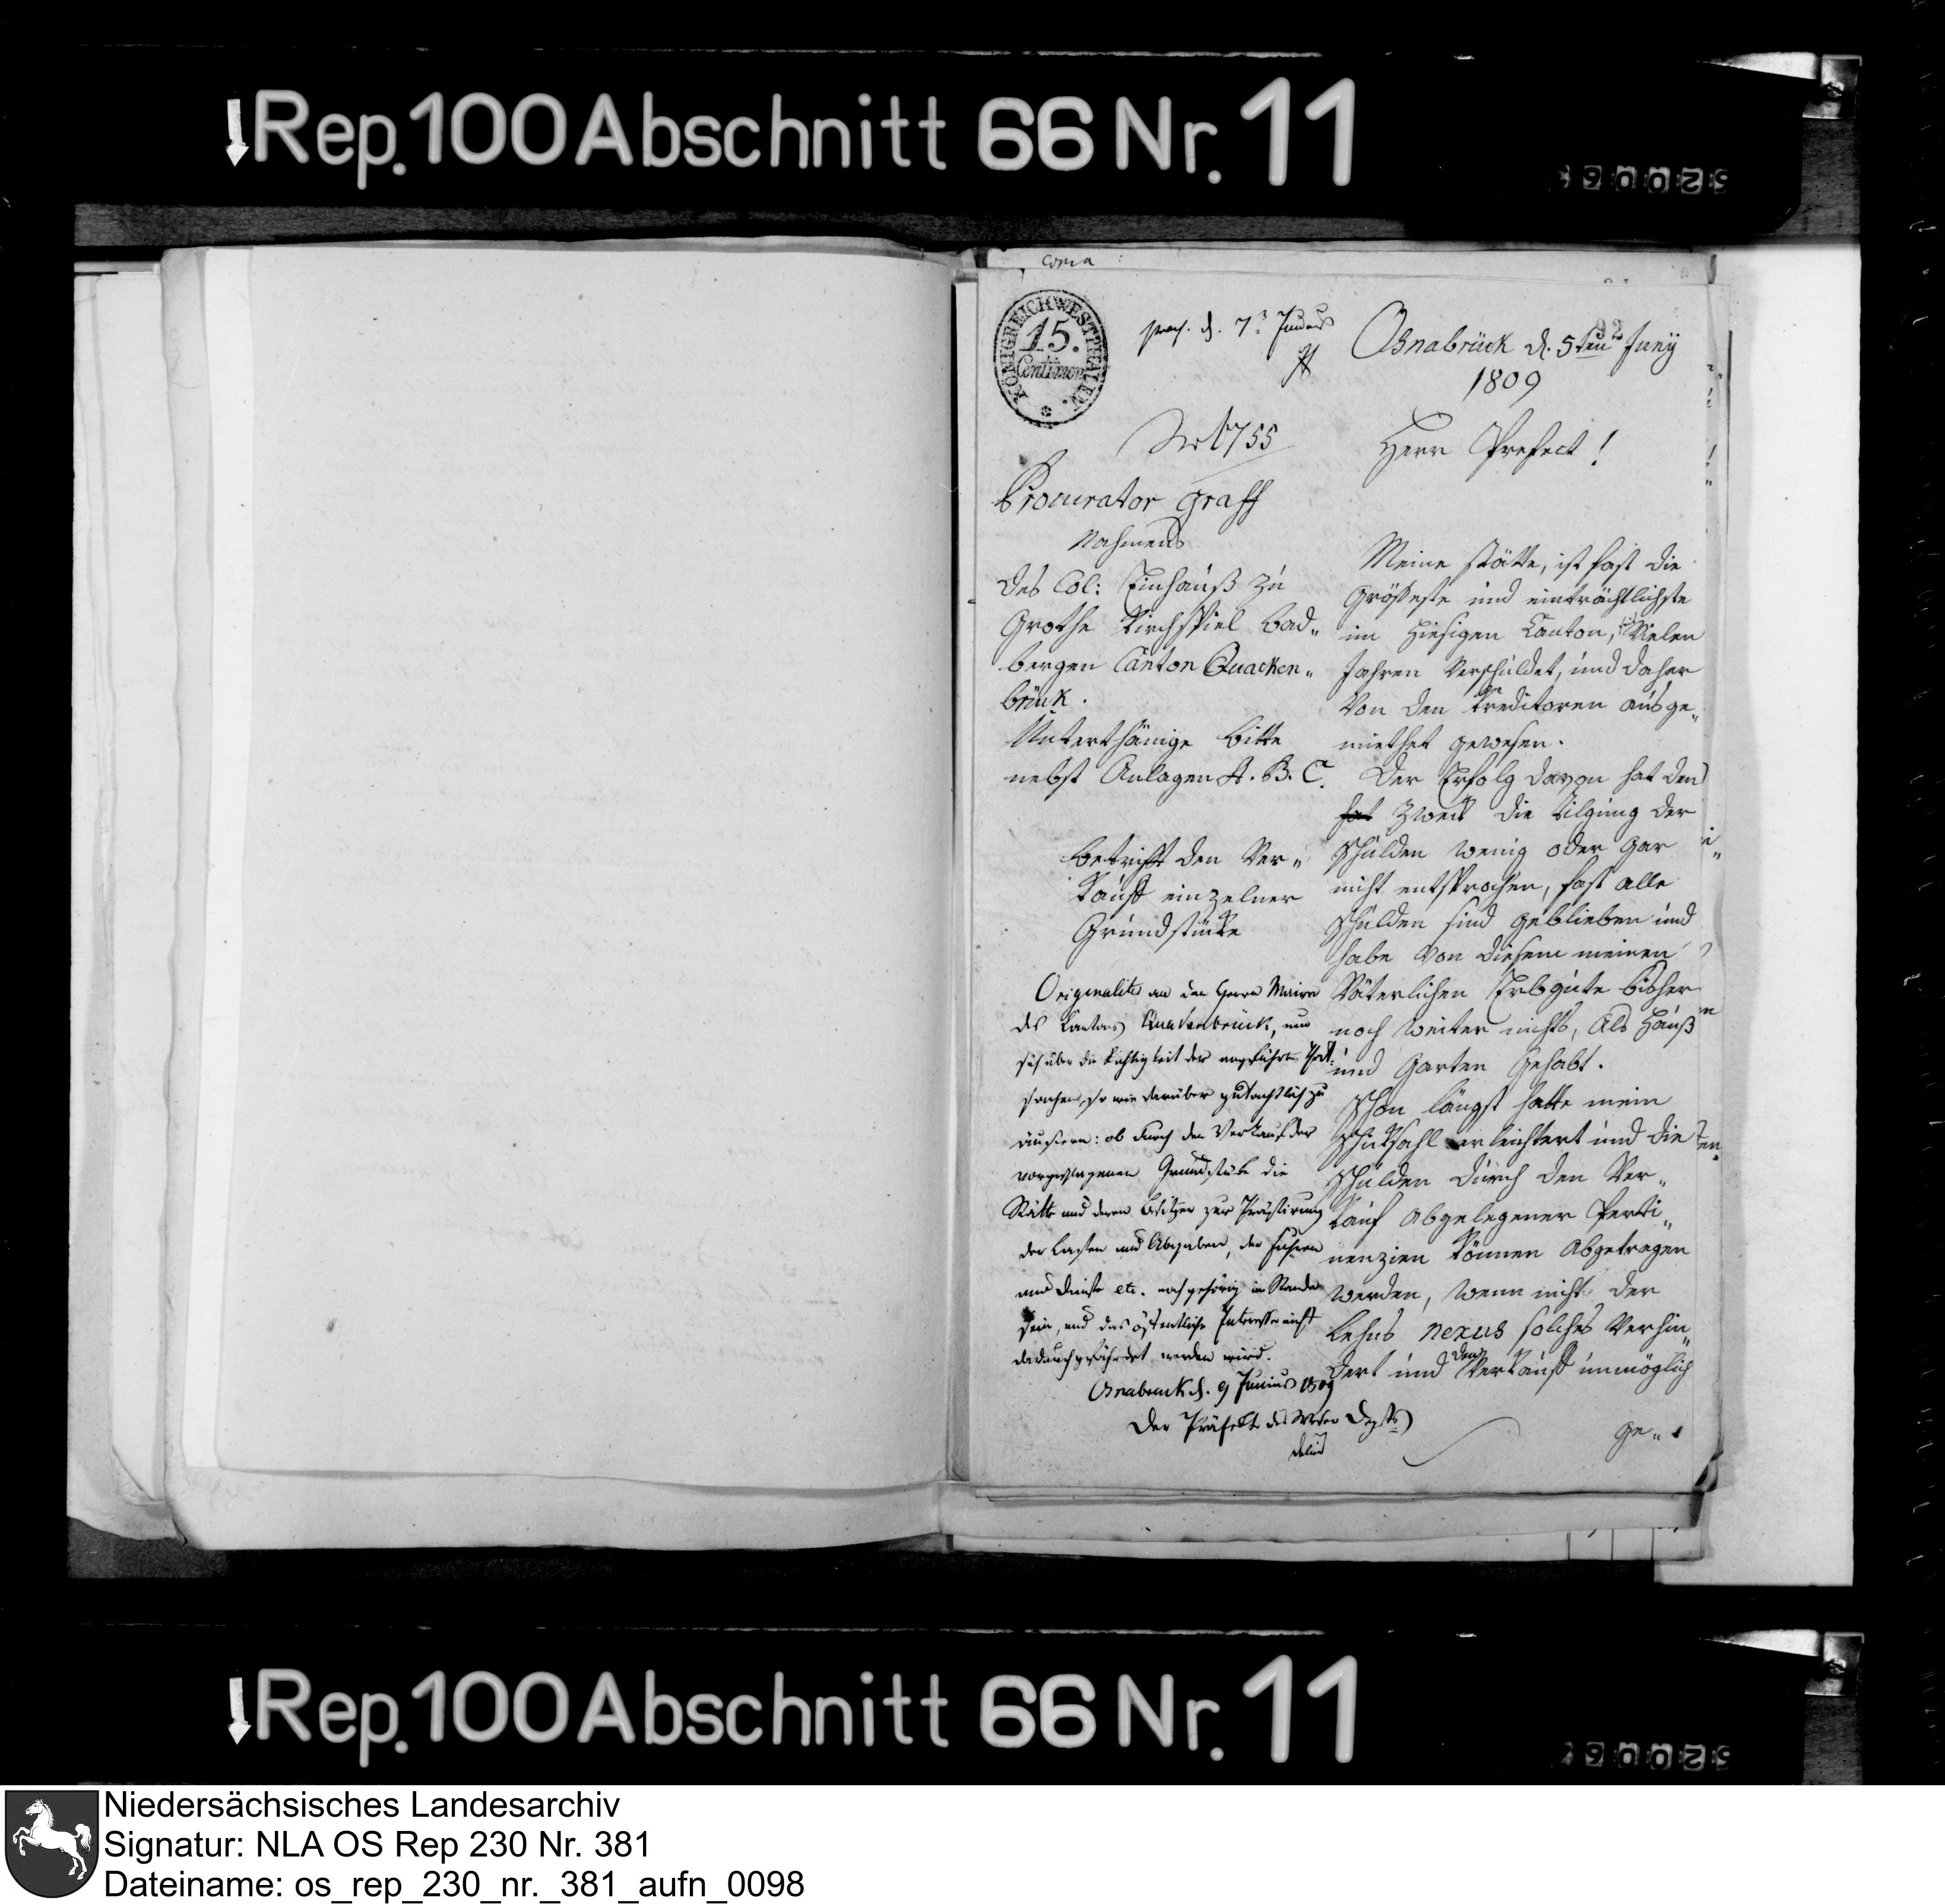 Rep. 100 Abschnitt 66 Nr. 11
KÖNIGREICH WESTPHALEN
15.
Centimen
praes. d. 7. Junius
92
Osnabrück d. 5ten Juny
1809
No 1755
Herr Prefect!
Procurator Graff
Nahmens
des Col: Einhauß zu
Grothe Kirchspiel Bad„
bergen Canton Quacken„
brück.
Unterthänige Bitte
nebst Anlagen A. B. C.
betrifft den Ver„
kauff einzelner
Grundstücke
Originaliter an den Herrn Maire
des Cantons Quakenbrück, um
sich über die Richtigkeit der angeführten That„
sachen, so wie darüber gutachtlich zu
äussern: ob durch den Verkauf der
vorgeschlagenen Grundstücke die
Stätte und deren Besitzer zur Prästirung
der Lasten und Abgaben, der Fuhren
und Dienste etc. noch gehörig im Stande
sein, und das öffentliche Interesse nicht
dadurch gefährdet werden wird.
Osnabrück d. 9 Junius 1809
Der Präfekt des Weser Depts
Meine Stätte, ist fast die
Größeste und einträchtlichste
im hiesigen Canton, seit Vielen
Jahren Verschuldet, und daher
Von den Creditoren ausge„
miethet gewesen.
Der Erfolg davon hat den
hat Zweck die Tilgung der
Schulden wenig oder gar
nicht entsprochen, fast alle
Schulden sind geblieben und
habe Von diesem meinen
Väterlichen Erbgute bisher
noch weiter nichts, Als Hauß
und Garten Gehabt.
Schon längst hatte mein
Schicksahl erleichtert und die
Schulden durch den Ver„
kauf Abgelegener Perti„
nenzien können Abgetragen
werden, wenn nicht der
Lehns nexus solches Verhin„
dert und den Verkauff unmöglich
ge„
Rep. 100 Abschnitt 66 Nr. 11
Niedersächsisches Landesarchiv
Signatur: NLA OS Rep 230 Nr. 381
Dateiname: os_rep_230_nr._381_aufn_0098